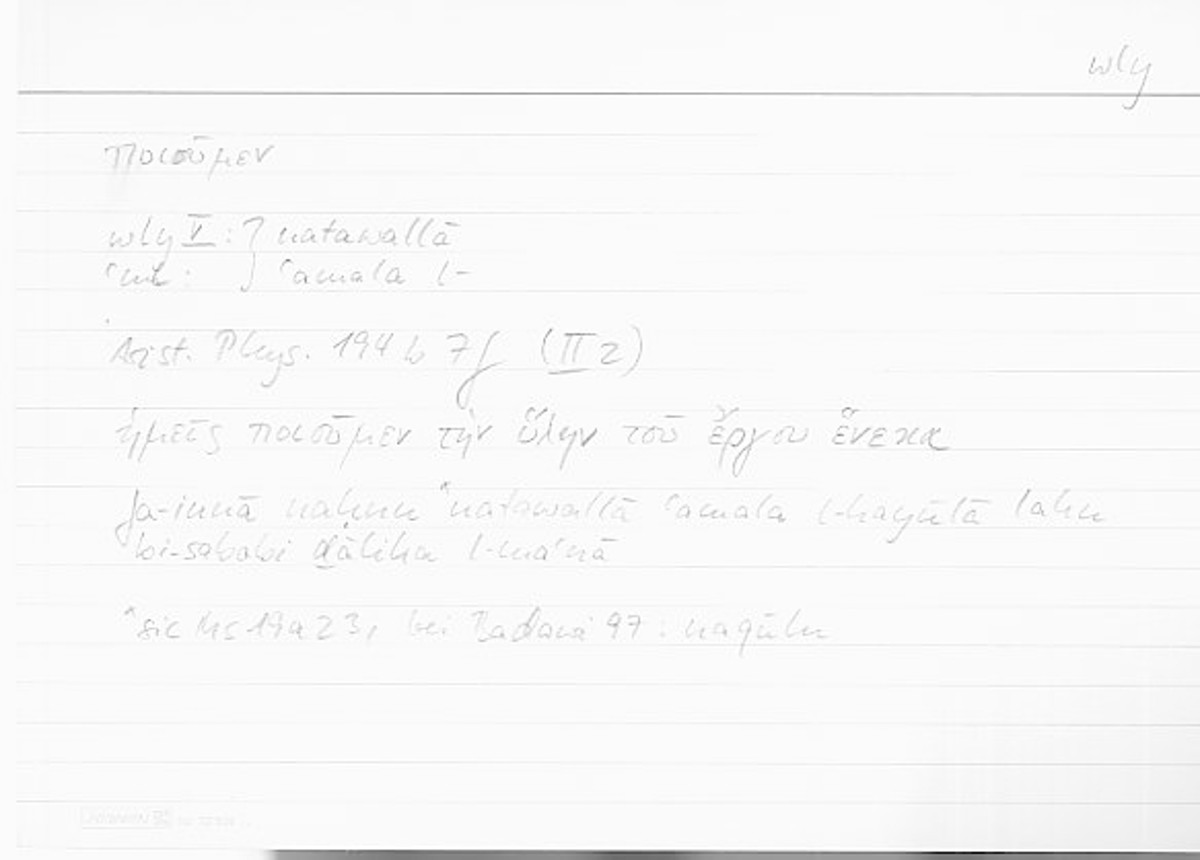 wly
ποιοῦμεν
wly V : } natawallā
ʿml : } ʿamala l-
Arist. Phys. 194 b 7f (II 2)
ἡμεῖς ποιοῦμεν τὴν ὕλην τοῦ ἔργου ἕνεκα
fa-innā naḥnu *natawallā ʿamala l-hayūlā lahu
bi-sababi ḏālika l-maʿnā
*sic Ms 19a23, bei Badawi 97 : naqūlu